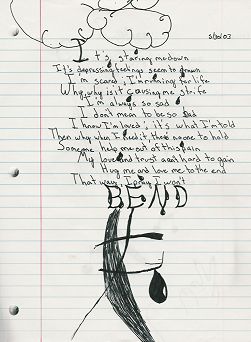 5/30/03
It's staring me down
It's depressing, feelings seem to drown
I'm scared; I'm running for life
Why, why is it causing me strife
I'm always so sad
I don't mean to be so bad
I know I'm loved; it's what I'm told
Then why when I need it, there's no one to hold
Someone help me out of this pain
My love and trust aant hard to gain
Hug me and love me to the end
That way, I pray I won't
BEND